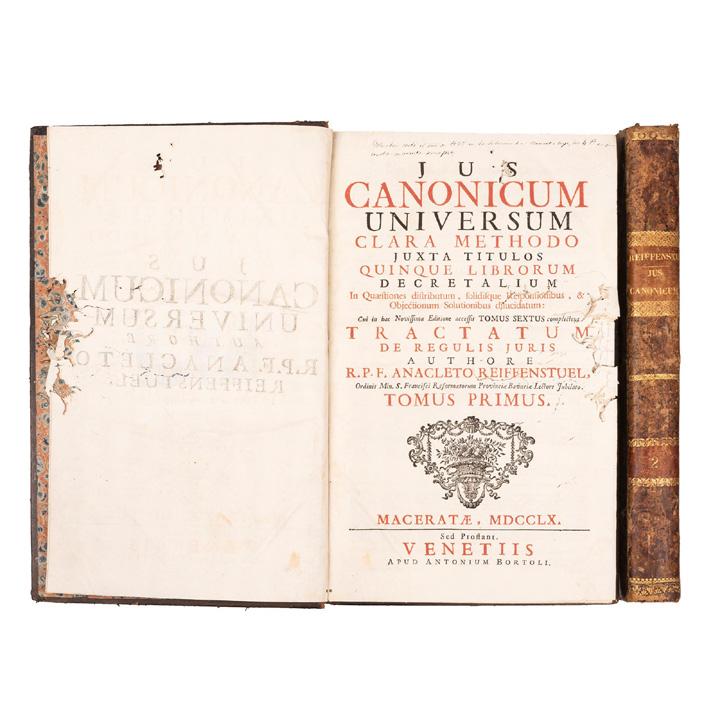 JUS
CANONICUM
UNIVERSUM
CLARA METHODO
JUXTA TITULOS
QUINQUE LIBRORUM
DECRETALIUM
In Quæstiones distributum, solidisque Responsionibus, &
Objectionum Solutionibus dilucidatum:
Cui in hac Novissima Editione accessit TOMUS SEXTUS complectens
TRACTATUM
DE REGULIS JURIS
AUTHORE
R. P. F. ANACLETO REIFFENSTUEL,
Ordinis Min. S. Francisci Reformatorum Provinciæ Bavariæ Lectore Jubilato.
TOMUS PRIMUS.
MACERATÆ, MDCCLX.
Sed Prostant.
VENETIIS
APUD ANTONIUM BORTOLI.
REIFFENSTU
JUS
CANONICUM
2